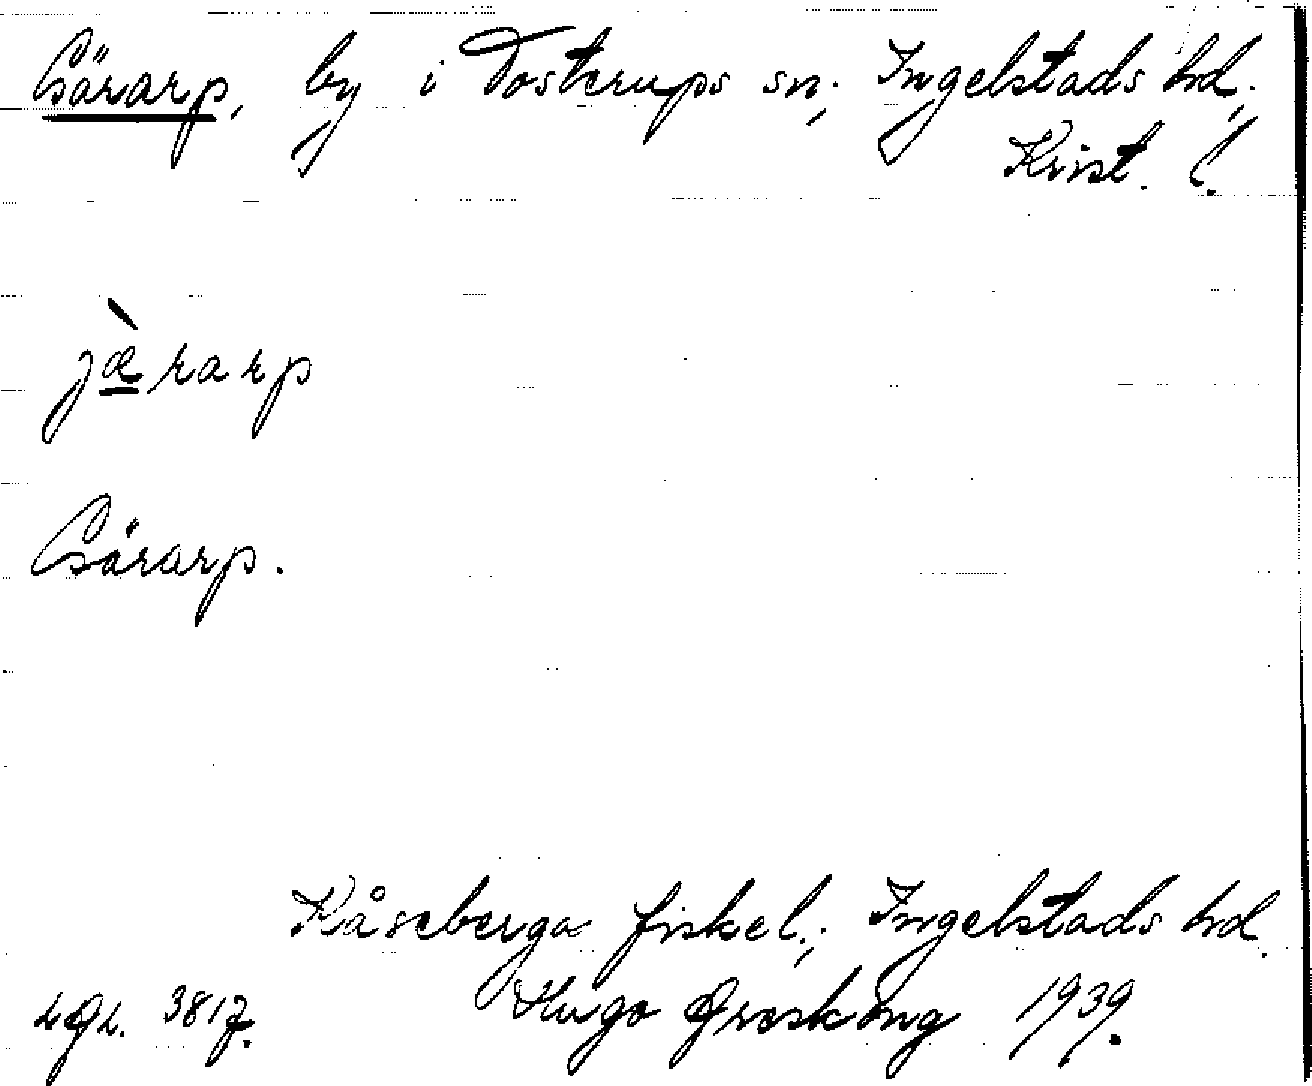 Gärarp, by i Tosterups sn; Ingelstads hd;
Krist. l.
jæ̀rarp
Gärarp.
Kåseberga fiskel.; Ingelstads hd.
Hugo Areskoug 1939.
LGL. 3817.